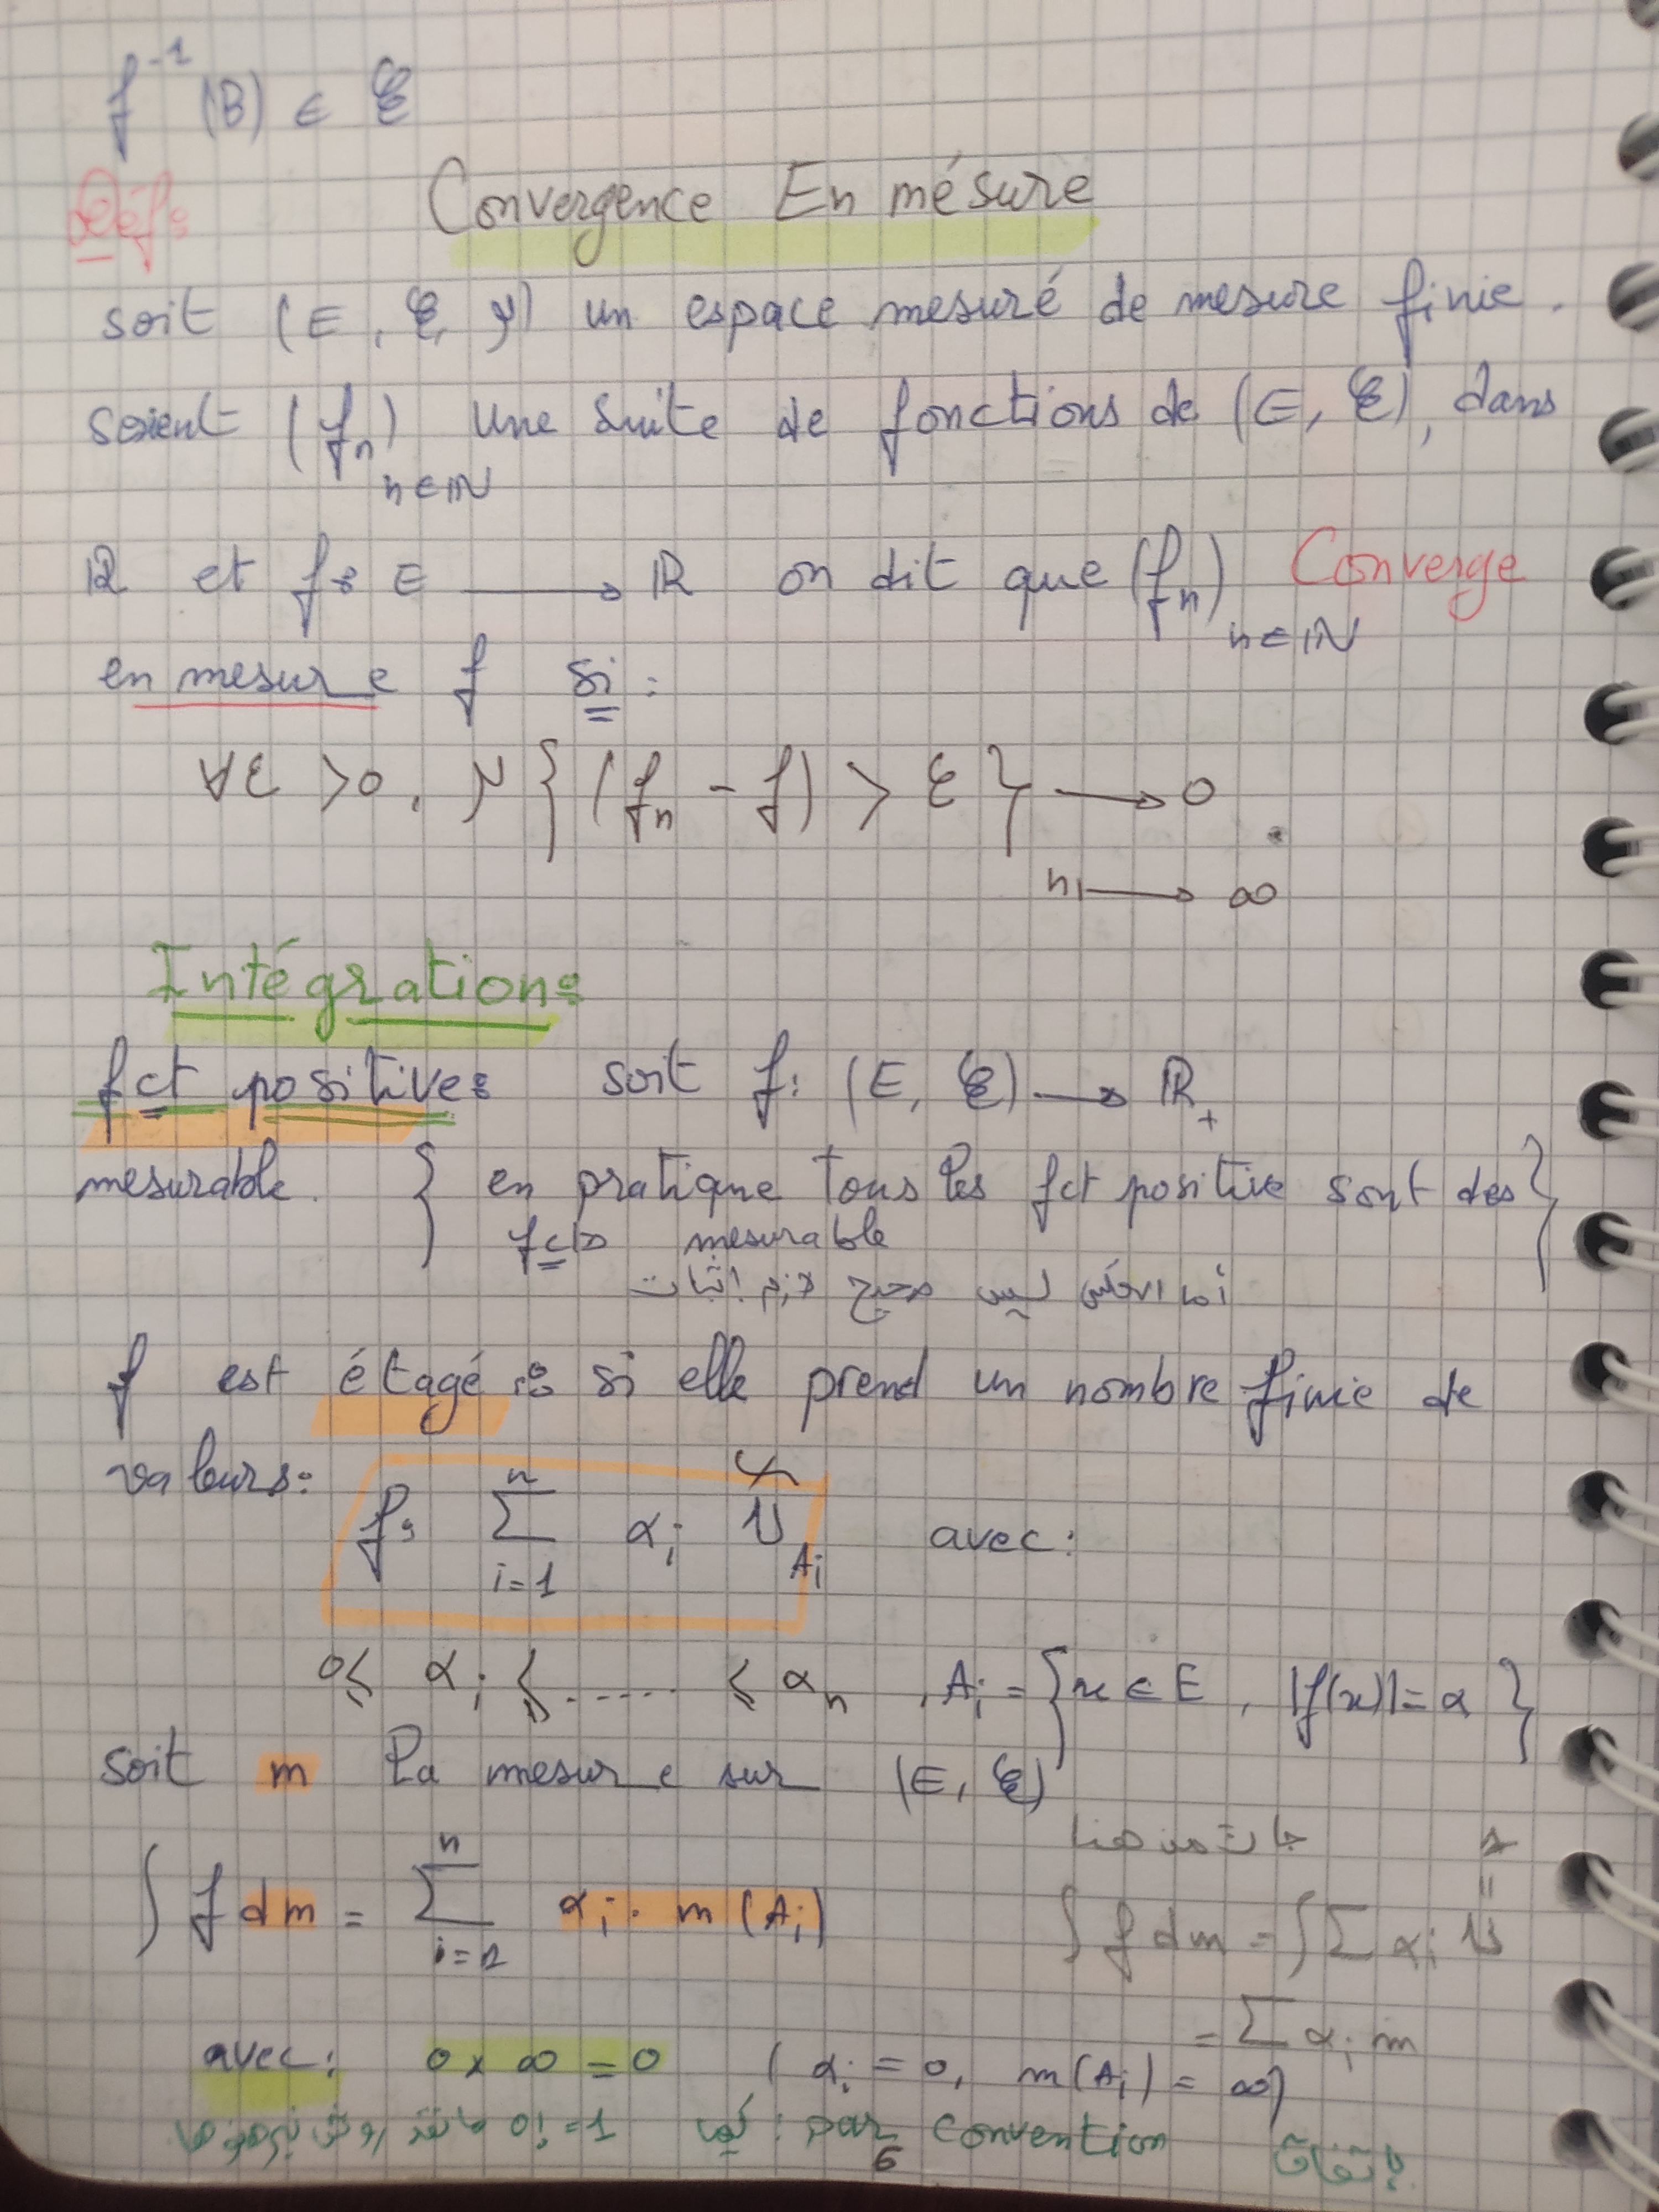 f⁻¹ (B) ∈ ℰ
Convergence En mésure
Déf:
soit (E, ℰ, μ) un espace mesuré de mesure finie.
soient (fₙ)n∈ℕ une suite de fonctions de (E, ℰ), dans
ℝ et f: E ⟶ ℝ on dit que (fₙ)n∈ℕ Converge
en mesure f si:
∀ε >0, μ{(fₙ - f) > ε} ⟶ 0
n ⟶ ∞
Intégration:
fct positive: soit f: (E, ℰ) ⟶ ℝ₊
mesurable. { en pratique tous les fct positive sont des }
fcts mesurable
أما العكس ليس صحيح لازم اثبات
f est étagé: si elle prend un nombre finie de
valeurs: f: Σ_{i=1}^{n} αᵢ 1_{Aᵢ} avec:
0⩽ αᵢ ⩽ ..... ⩽ αₙ , Aᵢ = {x ∈ E , |f(x)| = α }
soit m la mesure sur (E, ℰ)
∫ f dm = Σ_{i=1}^{n} αᵢ · m (Aᵢ)
∫ f dm = ∫ Σ αᵢ 1
= Σ αᵢ m
avec: 0 x ∞ = 0 ( αᵢ = 0, m(Aᵢ) = ∞)
0! = 1 : par convention باتفاق
6